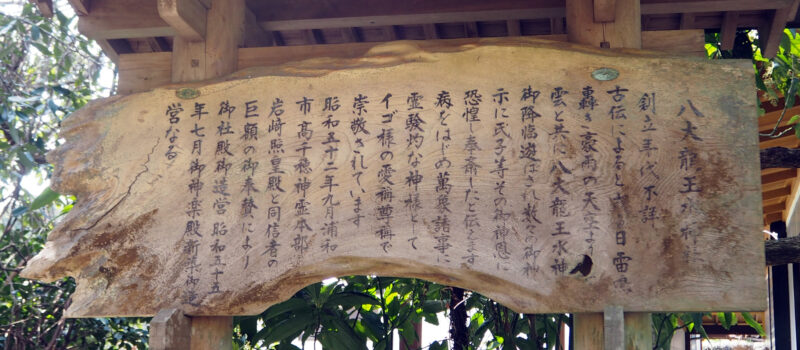 八大龍王水神
創立年代不詳
古伝によると古 日雷鳴
轟き豪雨の天空より
雲と共に八大龍王水神
御降臨遊ばされ数々の御神
示に氏子等その御神恩に
恐惶し奉斎したと伝えます
病をはじめ萬衆諸事に
霊験灼な神様として
イゴ様の愛称尊称で
崇敬されています
昭和五十二年九月浦和
市高千穂神霊本部
岩崎照皇殿と同信者の
巨額の御奉賛により
御社殿御造営昭和五十五
年七月御神楽殿新築御造
営なる